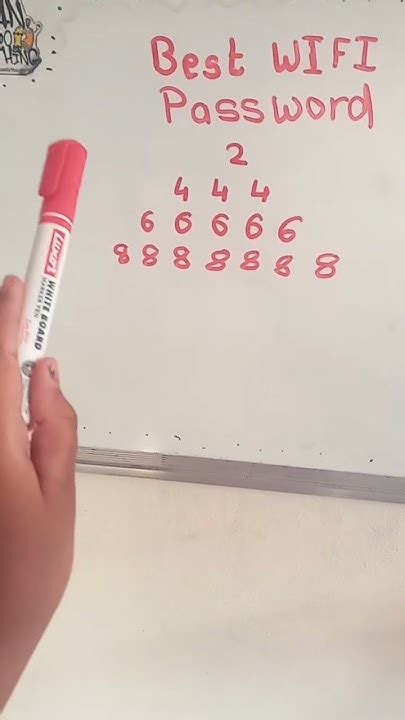 Best WIFI
Password
2
4 4 4
6 6 6 6 6
8 8 8 8 8 8 8
WHITE BOARD
MARKER PEN